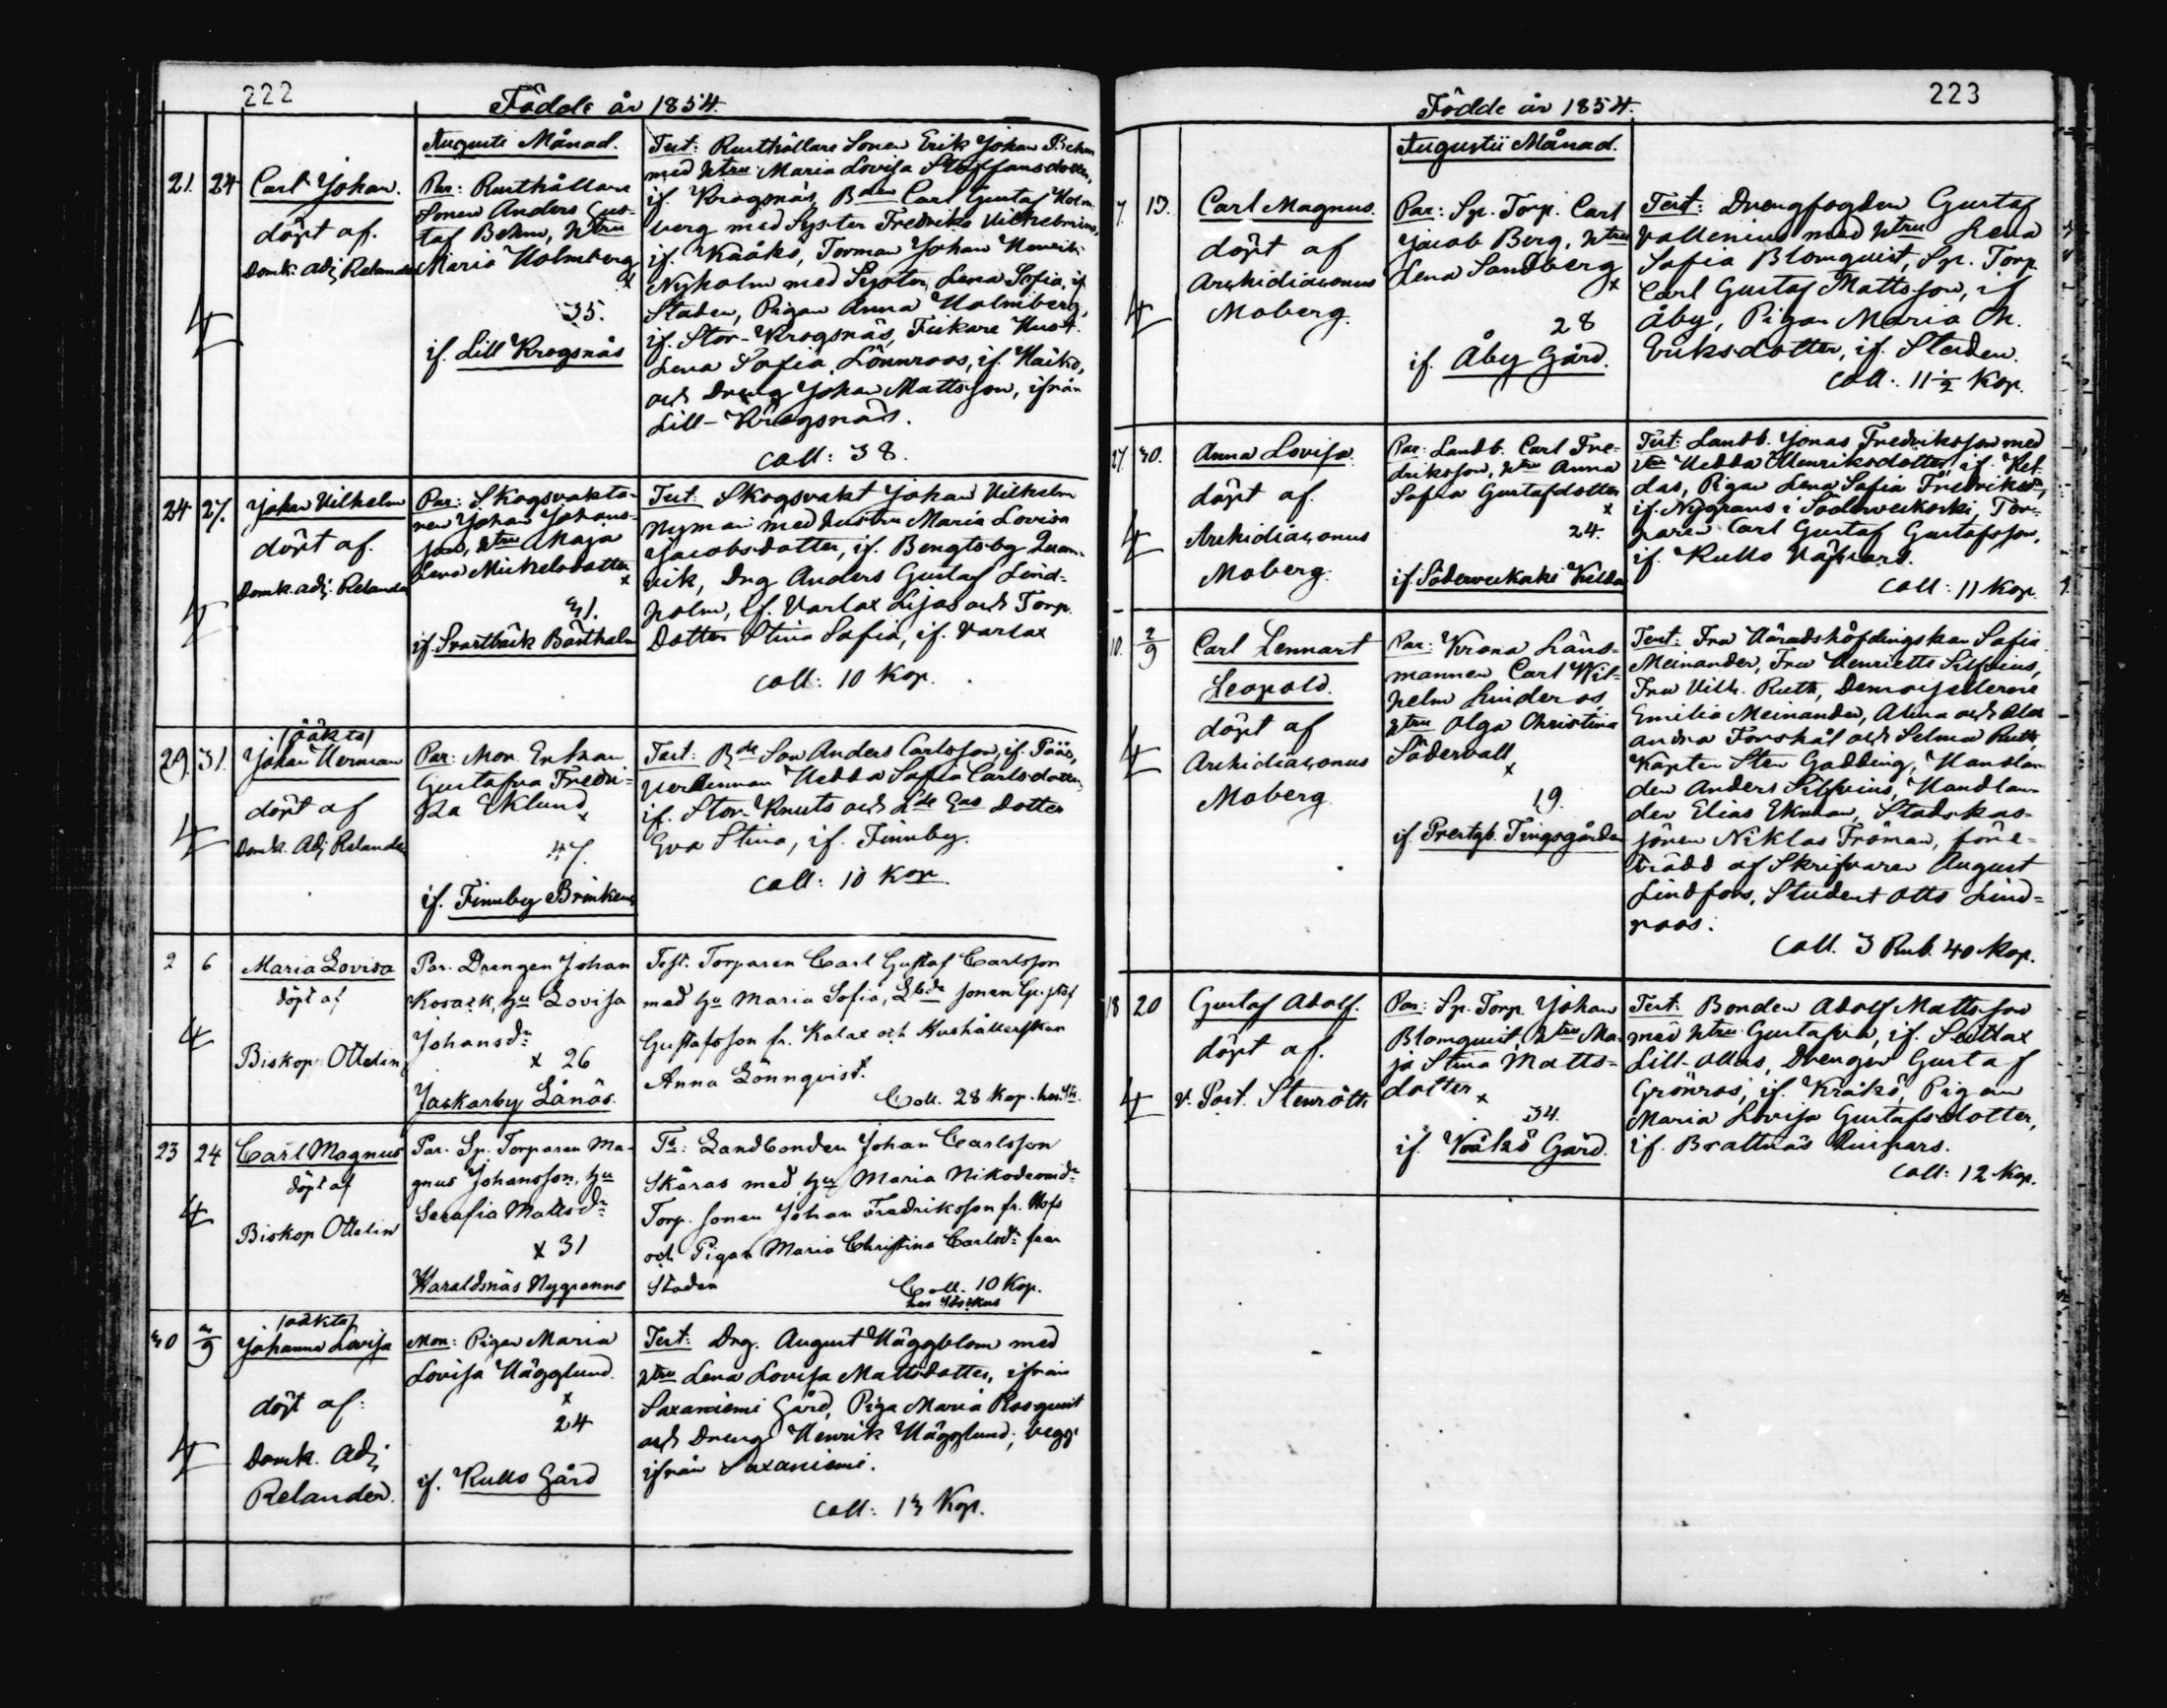 222
Födde år 1854.
Augusti Månad.
21. 24
Carl Johan.
döpt af.
Domk. adj. Relander
Par: Rusthållare
Sonen Anders Gus-
taf Behm, hstru
Maria Holmberg
x
35.
if. Lill Krogsnäs
Test: Rusthållare Sonen Erik Johan Behm
med hstru Maria Lovisa Staffansdotter,
if. Krogsnäs, Bden Carl Gustaf Holm-
berg med Syster Fredrika Vilhelmina,
if. Kråkö, Torman Johan Henrik
Nyholm med Syster Lena Sofia, if
Staden, Pigan Anna Holmberg,
if. Stor-Krogsnäs, Fiskare Hust.
Lena Sofia Lönnroos, if. Haikö,
och Dreng Johan Mattsson, ifrån
Lill-Krogsnäs.
Coll: 38.
24 27.
Johan Vilhelm
döpt af.
Domk. adj. Relander
Par: Skogsvakta-
ren Johan Johans-
son, hstru Maja
Lena Mickelsdotter
x
31.
if. Svartbäck Bärtholm
Test: Skogsvakt Johan Vilhelm
Nyman med hustru Maria Lovisa
Jacobsdotter, if. Bengtsby
vik, Drg Anders Gustaf Lind-
holm, if. Varlax Lijas och Torp.
Dotter Stina Sofia, if. Varlax
Coll: 10 Kop.
29. 31.
/oäkta/
Johan Herman
döpt af
Domk. Adj Relander
Par: Mor. Enkan
Gustafva Fredri-
ka Eklund
x
47.
if. Finnby Brinkens
Test: Bde Son Anders Carlsson, if.
Hedda Sofia Carlsdotter,
if. Stor-Knuts och Dotter
Eva Stina, if. Finnby.
Coll: 10 Kop.
2 6
Maria Lovisa
döpt af
Biskop Ottelin
Par. Drengen Johan
Kosack, hu Lovisa
Johansdr
x 26
Jackarby Lånäs.
Test. Torparen Carl Gustaf Carlsson
med hu Maria Sofia, Lbde sonen Gustaf
Gustafsson fr. Kalax och Hushållerskan
Anna Lönnqvist.
Coll. 28 Kop.
23 24
Carl Magnus
döpt af
Biskop Ottelin
Par. Sp. Torparen Ma-
gnus Johansson, hu
Serafia Mattsdr
x 31
Haraldsnäs Nygranns
Ts: Landbonden Johan Carlsson
Skåras med hu Maria Nikodemidr
Torp. sonen Johan Fredriksson fr. Hofs
och Pigan Maria Christina Carlsdr från
Staden
Coll. 10 Kop.
30 3/9
/oäkta/
Johanna Lovisa
döpt af:
Domk. Adj
Relander.
Mor: Pigan Maria
Lovisa Hägglund.
x
24
if. Kullo Gård
Test: Drg. August Häggblom med
hstru Lena Lovisa Mattsdotter, ifrån
Saxaniemi Gård, Piga Maria Rosqvist
och Dreng Henrik Hägglund, begge
ifrån Saxaniemi.
Coll: 13 Kop.
223
Födde år 1854.
Augustii Månad.
7. 13.
Carl Magnus.
döpt af
Archidiaconus
Moberg.
Par: Sp. Torp. Carl
Jacob Berg, hstru
Lena Sandberg
x
28
if. Åby Gård.
Test: Drengfogden Gustaf
Vallenius med hstru Lena
Sofia Blomquist, Sp. Torp.
Carl Gustaf Mattsson, if
Åby, Pigan Maria M.
Eriksdotter, if. Staden.
Coll: 11 1/2 Kop.
27. 30.
Anna Lovisa.
döpt af.
Archidiaconus
Moberg.
Par: Landb. Carl Fre-
driksson, hstru Anna
Sofia Gustafsdotter
x
24.
if. Söderveckoski Kelda
Test: Landb. Jonas Fredriksson med
htru Hedda Henriksdotter, if. Kel-
das, Pigan Lena Sofia Fredriksdr,
if. Nygrans i Söderveckoski, Tor-
paren Carl Gustaf Gustafsson,
if. Kullo Näfvars.
Coll: 11 Kop.
10. 2/9
Carl Lennart
Leopold.
döpt af
Archidiaconus
Moberg.
Par: Krono Läns-
mannen Carl Wil-
helm Linderos,
hstru Olga Christina
Södervall
x
19.
if. Prestgb. Tingsgården
Test: Fru Häradshöfdingskan Sofia
Meinander, Fru Henriette Silfvius,
Fru Vilh. Ruth, Demoisellerne
Emilia Meinander, Alma och Alex
andra Forskål och Selma Ruth,
Kapten Sten Gadding, Handlan-
den Anders Silfvius, Handlan-
den Elias Ekman, Stadskas-
sören Niklas Fröman, före-
trädd af Skrifvaren August
Lindfors, Student Otto Lind-
roos.
Coll. 3 Rub. 40 Kop.
18 20
Gustaf Adolf.
döpt af.
V. Past. Stenroth
Par: Sp. Torp. Johan
Blomquist, hstru Ma-
ja Stina Matts-
dotter
x
34.
if. Kråkö Gård.
Test: Bonden Adolf Mattsson
med hstru Gustafva, if. Seitlax
Lill-Ollas, Drengen Gustaf
Grönros, if. Kråkö, Pigan
Maria Lovisa Gustafsdotter,
if. Brattnäs.
Coll: 12 Kop.